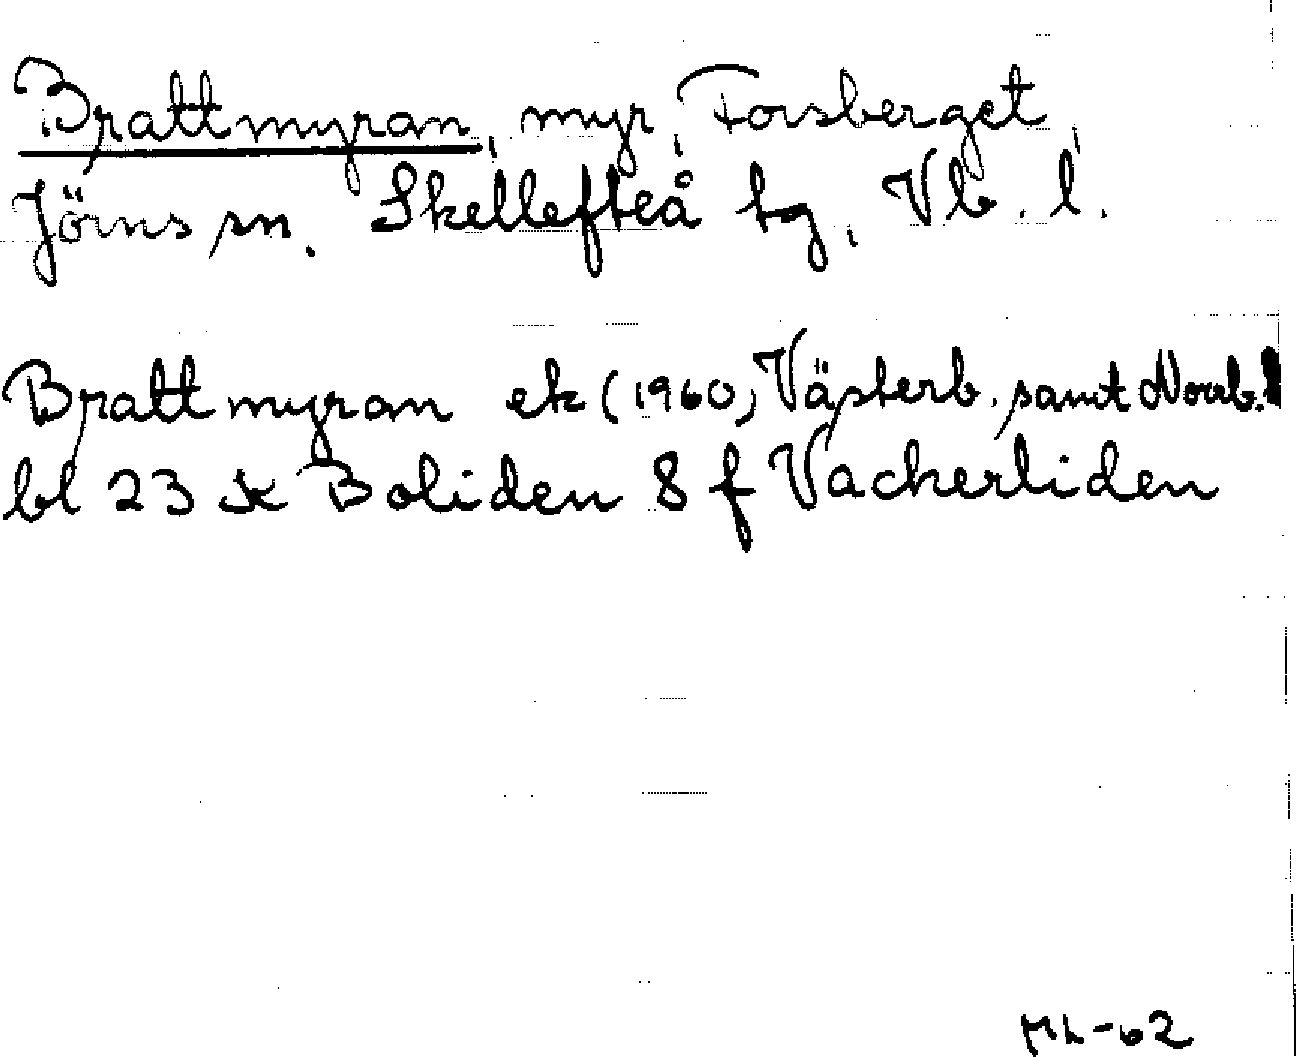 Brattmyran, myr, Forsberget,
Jörns sn. Skellefteå tg, Vb. l.
Brattmyran ek (1960, Västerb. samt Norrb. l
bl 23 K Boliden 8 f Vackerliden
ML-62